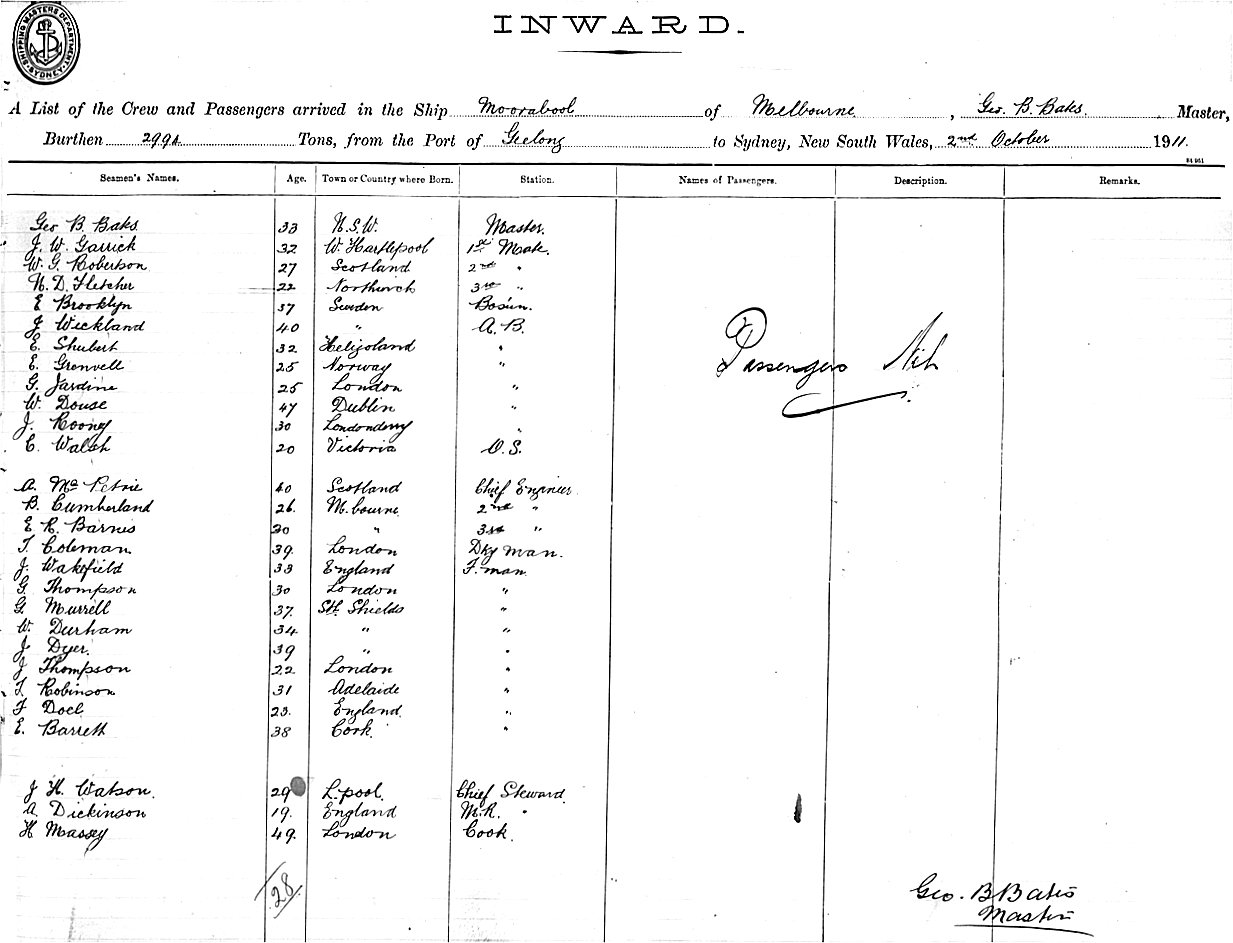 SHIPPING MASTERS DEPARTMENT SYDNEY
INWARD.
A List of the Crew and Passengers arrived in the Ship Moorabool of Melbourne, Geo. B. Bates. Master,
Burthen 2994 Tons, from the Port of Geelong to Sydney, New South Wales, 2nd October 1911.
Seamen's Names. Age. Town or Country where Born. Station. Names of Passengers. Description. Remarks.
Geo B. Bates 33 N.S.W. Master.
J. W. Garrick 32 W. Hartlepool 1st Mate.
W. G. Robertson 27 Scotland 2nd "
N. D. Fletcher 22 3rd "
E Brooklyn 37 Sweden Bosun.
J Wickland 40 " A.B.
E. Shubert 32 Heligoland "
E. Grenvell 25 Norway "
G. Jardine 25 London "
W. Douse 47 Dublin "
J. Rooney 30 Londonderry "
C. Walsh 20 Victoria O.S.
Passengers Nil
A. Mc Petrie 40 Scotland Chief Engineer
B. Cumberland 26. M.bourne 2nd "
E R. Barnes 20 " 3rd "
T. Coleman. 39. London Dky man.
J. Wakefield 33 England F. man.
G. Thompson 30 London "
G. Murrell 37. Sth. Shields "
W. Durham 34. " "
J Dyer. 39 " "
J Thompson 22 London "
T. Robinson 31 Adelaide "
F Doel 23. England "
E. Barrett 38 Cork. "
J H. Watson. 29 L.pool. Chief Steward
A. Dickinson 19. England M.R. "
H Massey 49. London Cook.
28
Geo. B Bates
Master